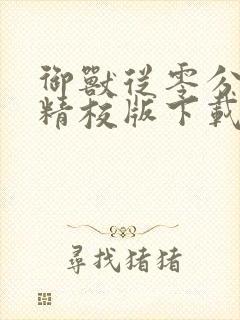 御獸從零分
精校版下載
尋找猪猪